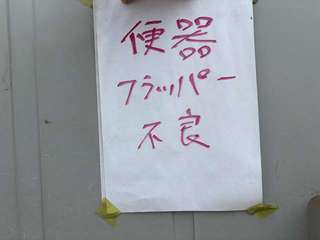 便器
フラッパー
不良